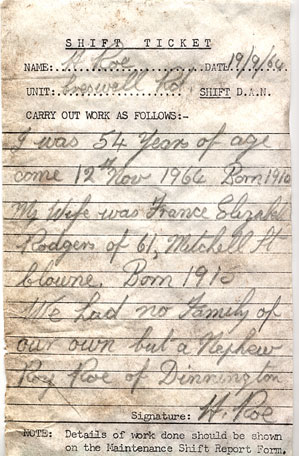 SHIFT TICKET
NAME: H Roe DATE 19/9/64
UNIT: Creswell Col. SHIFT D.A.N.
CARRY OUT WORK AS FOLLOWS:-
I was 54 Years of age
come 12th Nov 1964 Born 1910
My Wife was France Elizabeth
Rodgers of 61, Mitchell St
Clowne. Born 1915
We had no Family of
our own but a Nephew
Roy Roe of Dinnington
Signature: H. Roe
NOTE: Details of work done should be shown
on the Maintenance Shift Report Form.